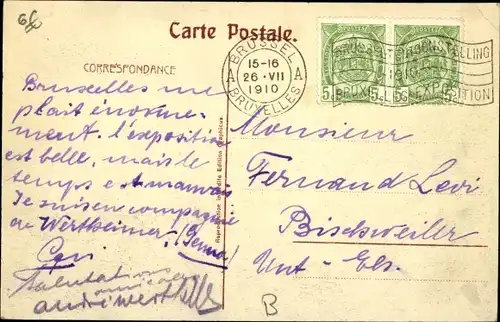 Carte Postale.
CORRESPONDANCE
BRUSSEL
15-16
A A
26·VII
1910
BRUXELLES
TENTOONSTELLING
1910
BRUXELLES EXPOSITION
5c 5c
Bruxelles me
plait énorme-
ment. l'exposition
est belle, mais le
temps est mauvais
Je suis en compagnie
de Wertheimer,
Reproduction interdite Edition Graphicus.
Monsieur
Fernand Levi
Bischweiler
Unt-Els.
B